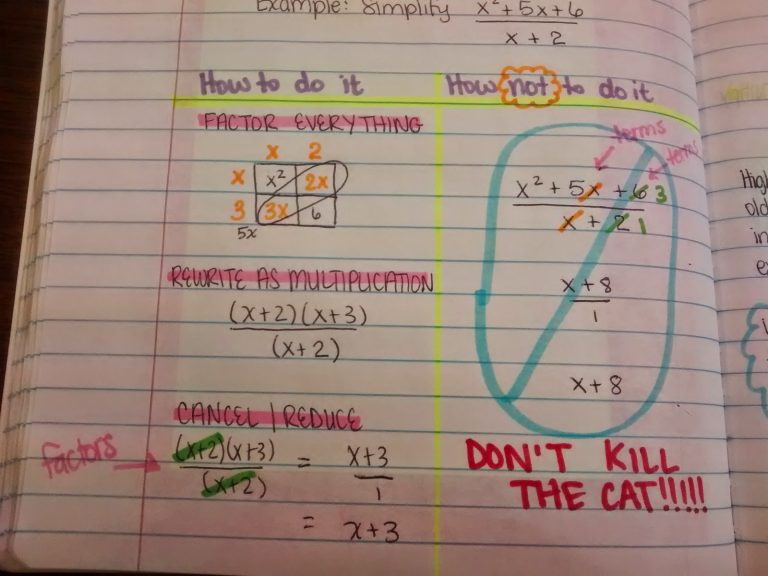 Example: Simplify x² + 5x + 6
x + 2
How to do it
FACTOR EVERYTHING
x 2
x x² 2x
3 3x 6
5x
REWRITE AS MULTIPLICATION
(x+2)(x+3)
(x+2)
CANCEL | REDUCE
factors
(x+2)(x+3) = x+3
(x+2) 1
= x+3
How not to do it
terms
terms
x² + 5x + 6 3
x + 2 1
x + 8
1
x + 8
DON'T KILL
THE CAT!!!!!
old
in